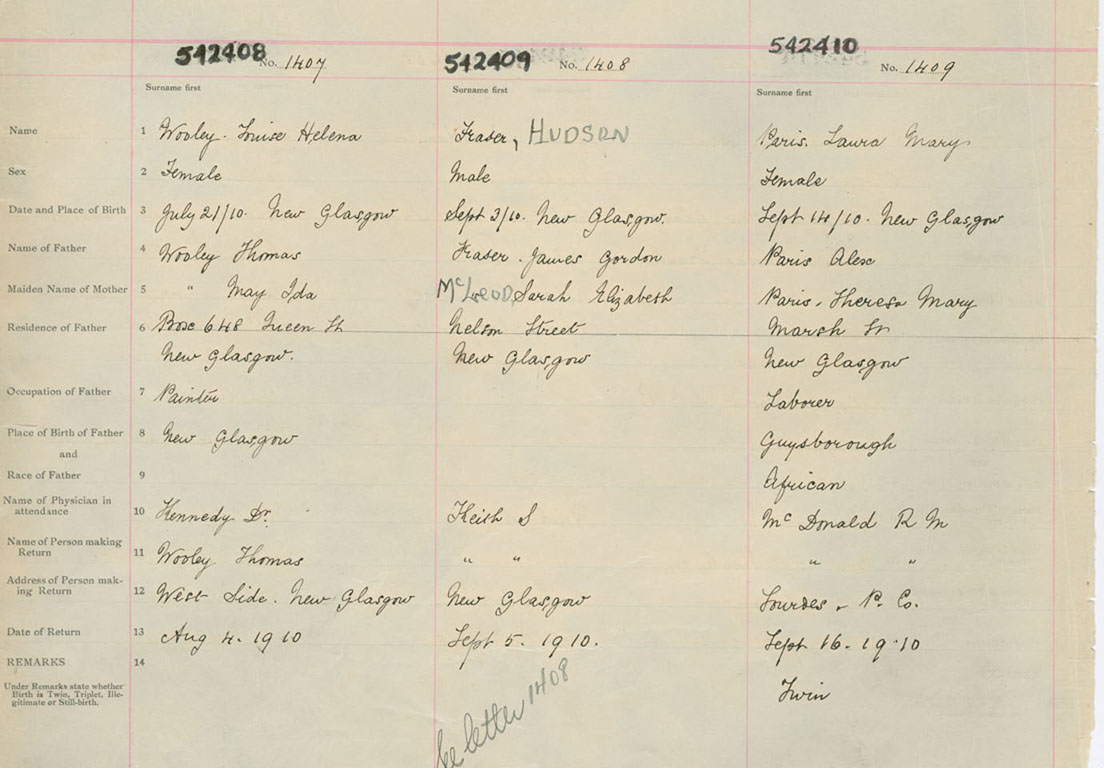 542408 No. 1407 542409 No. 1408 542410 No. 1409
Surname first Surname first Surname first
Name 1 Wooley. Louise Helena Fraser, HUDSON Paris. Laura Mary
Sex 2 Female Male Female
Date and Place of Birth 3 July 21/10. New Glasgow Sept 3/10. New Glasgow. Sept 14/10. New Glasgow
Name of Father 4 Wooley Thomas Fraser. James Gordon Paris Alex
Maiden Name of Mother 5 " May Ida McLEOD, Sarah Elizabeth Paris, Theresa Mary
Residence of Father 6 Box 648 Queen St Nelson Street Marsh St
New Glasgow. New Glasgow New Glasgow
Occupation of Father 7 Painter Laborer
Place of Birth of Father 8 New Glasgow Guysborough
and
Race of Father 9 African
Name of Physician in
attendance 10 Kennedy Dr. Keith S McDonald R M
Name of Person making
Return 11 Wooley Thomas " " " "
Address of Person mak-
ing Return 12 West Side. New Glasgow New Glasgow Lourdes - P. Co.
Date of Return 13 Aug 4. 1910 Sept 5. 1910. Sept 16. 1910
REMARKS 14
Under Remarks state whether
Birth is Twin, Triplet, Ille-
gitimate or Still-birth.
Twin
letter 1408